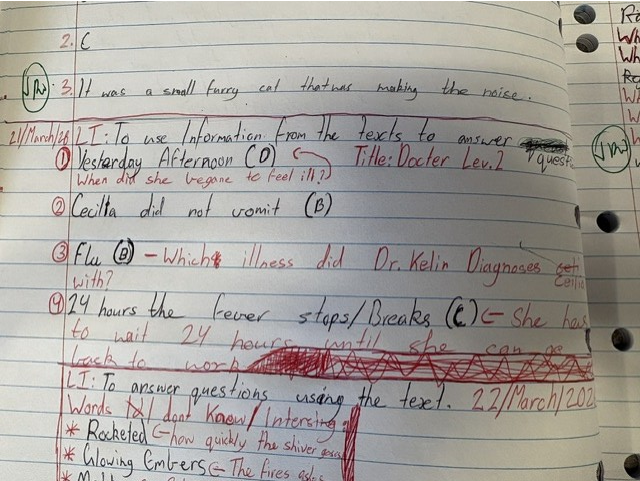 2. C
3. It was a small furry cat that was making the noise.
21/March/26 LI: To use Information from the texts to answer questi
① Yesterday Afternoon (D) Title: Docter Lev. 2
When did she begane to feel ill?
② Cecilia did not vomit (B)
③ Flu (B) - Which illness did Dr. Kelin Diagnoses
with?
④ 24 hours the fever stops/Breaks (C) She has
to wait 24 hours until she can go
back to work
LI: To answer questions using the text. 22/March/202
Words I dont Know/Intersing
* Rocketed how quickly the shiver goes
* Glowing Embers The fires